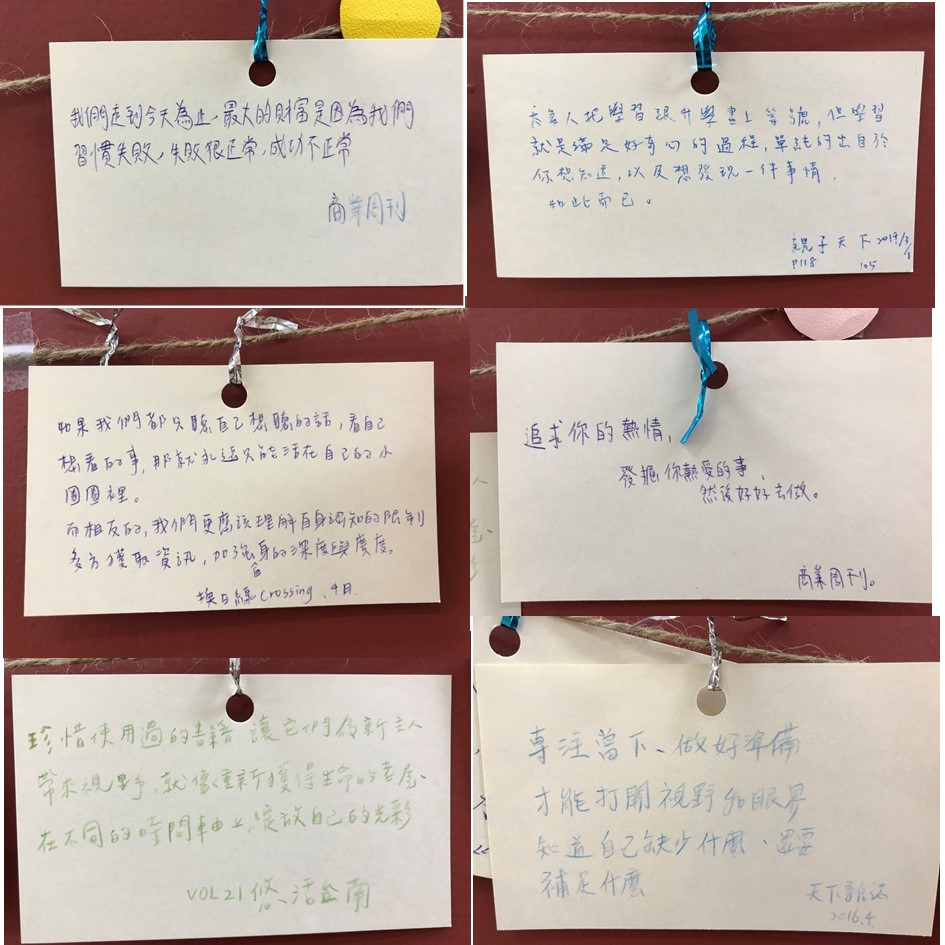 我們走到今天為止，最大的財富是因為我們
習慣失敗，失敗很正常，成功不正常
商業周刊
太多人把學習跟升學畫上等號，但學習
就是滿足好奇心的過程，單純的出自於
你想知道，以及想發現一件事情，
如此而已。
親子天下 2019/3/1
P118 105
如果我們都只聽自己想聽的話，看自己
想看的事，那就永遠只能活在自己的小
圈圈裡。
而相反的，我們更應該理解自身認知的限制
多方獲取資訊，加強自身的深度與廣度。
換日線crossing、4月
追求你的熱情，
發掘你熱愛的事、
然後好好去做。
商業周刊。
珍惜使用過的書籍 讓它們為新主人
帶來視野，就像重新獲得生命的老屋、
在不同的時間軸上綻放自己的光彩
VOL21 悠活台南
專注當下、做好準備
才能打開視野和眼界
知道自己缺少什麼、還要
補足什麼
天下雜誌
2016.4.